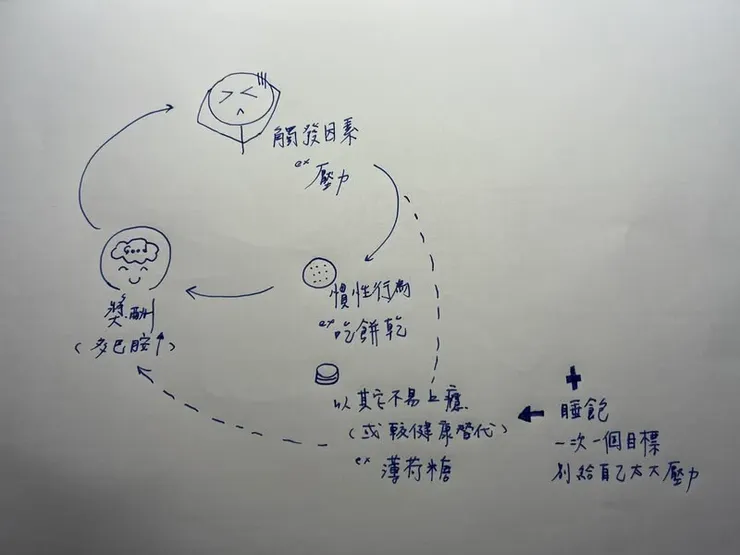 觸發因素
ex 壓力
慣性行為
ex 吃餅乾
獎酬
(多巴胺↑)
以其它不易上癮
(或較健康替代)
ex 薄荷糖
+
睡飽
一次一個目標
別給自己太大壓力